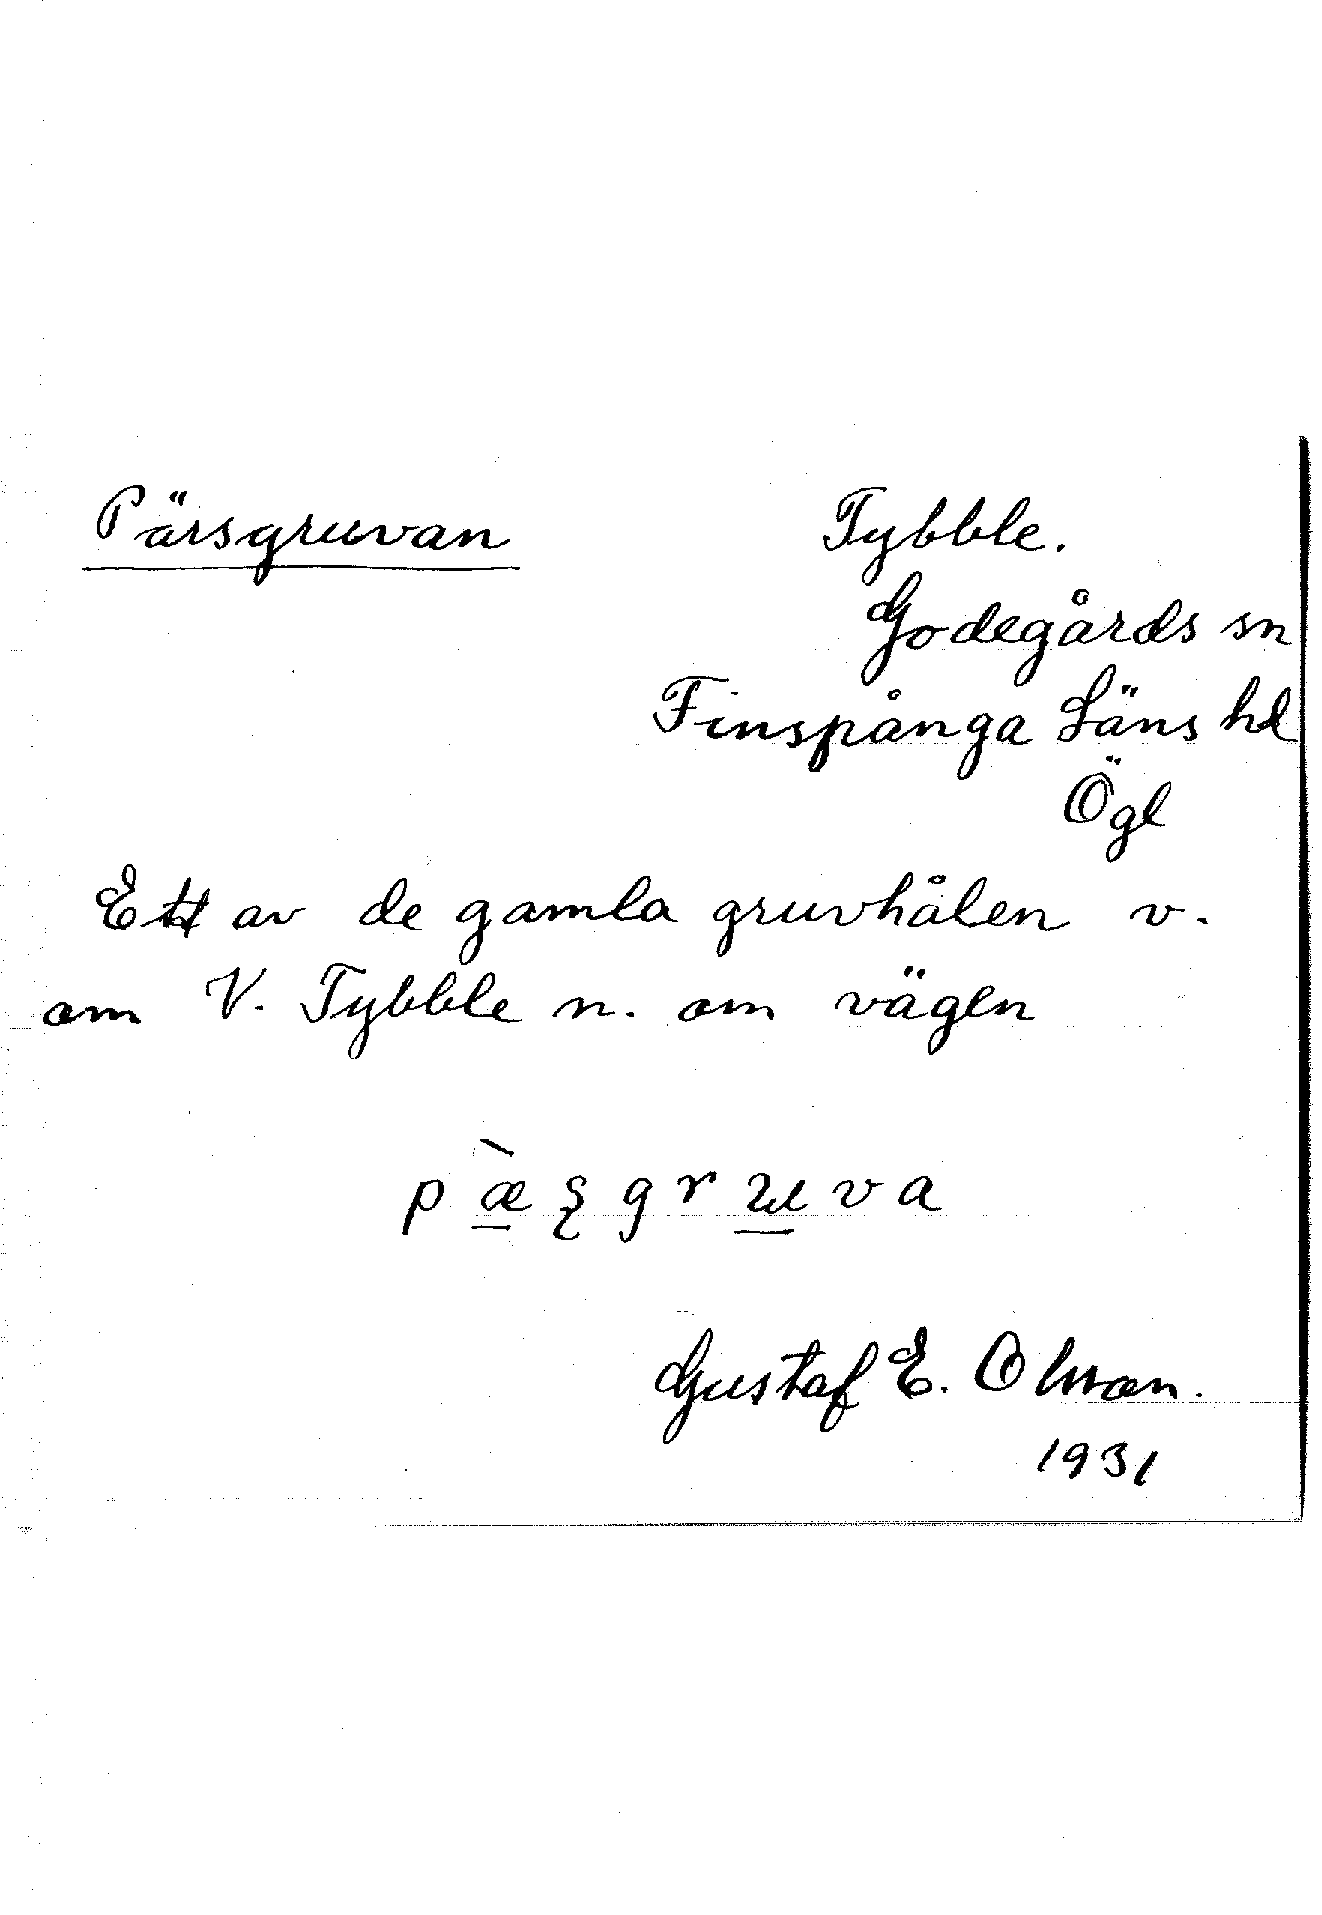 Pärsgruvan
Tybble.
Godegårds sn
Finspånga Läns hd
Ögl
Ett av de gamla gruvhålen v.
om V. Tybble n. om vägen
pæ̀ʂgruva
Gustaf E. Olsson.
1931